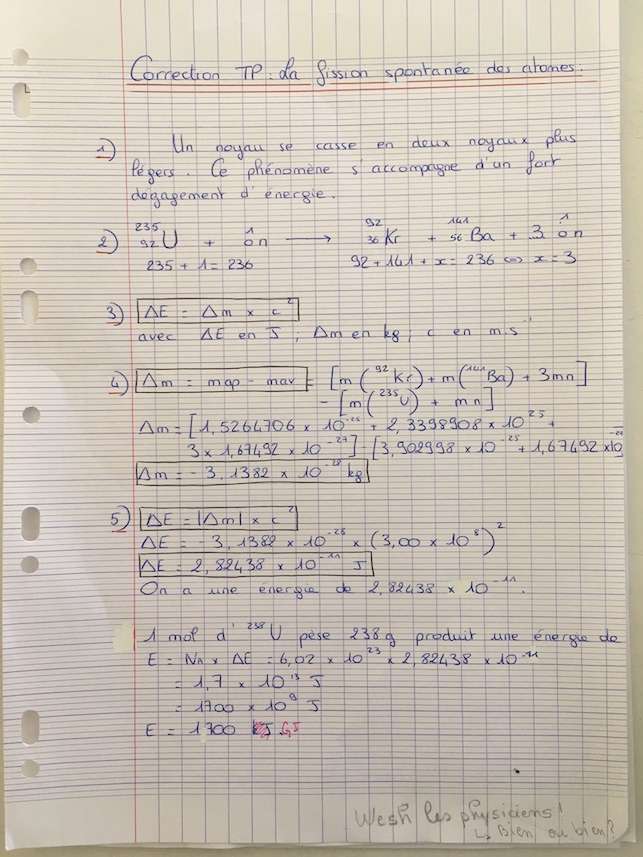 Correction TP : La fission spontanée des atomes.
1) Un noyau se casse en deux noyaux plus
légers. Ce phénomène s'accompagne d'un fort
dégagement d'énergie.
2) ²³⁵₉₂U + ¹₀n → ⁹²₃₆Kr + ¹⁴¹₅₆Ba + 3 ¹₀n
235 + 1 = 236 92 + 141 + x = 236 ⇔ x = 3
3) ΔE = Δm × c²
avec ΔE en J ; Δm en kg ; c en m.s⁻¹
4) Δm = map - mav = [m(⁹²Kr) + m(¹⁴¹Ba) + 3mn]
- [m(²³⁵U) + mn]
Δm = [1,5264706 × 10⁻²⁵ + 2,3398908 × 10⁻²⁵ +
3 × 1,67492 × 10⁻²⁷] - [3,902998 × 10⁻²⁵ + 1,67492 × 10⁻²⁷]
Δm = - 3,1382 × 10⁻²⁸ kg
5) ΔE = |Δm| × c²
ΔE = - 3,1382 × 10⁻²⁸ × (3,00 × 10⁸)²
ΔE = 2,82438 × 10⁻¹¹ J
On a une énergie de 2,82438 × 10⁻¹¹.
1 mol d'²³⁸U pèse 238 g produit une énergie de
E = Na × ΔE = 6,02 × 10²³ × 2,82438 × 10⁻¹¹
= 1,7 × 10¹³ J
= 1700 × 10⁹ J
E = 1700 GJ
Wesh les physiciens !
↳ Bien ou bien ?